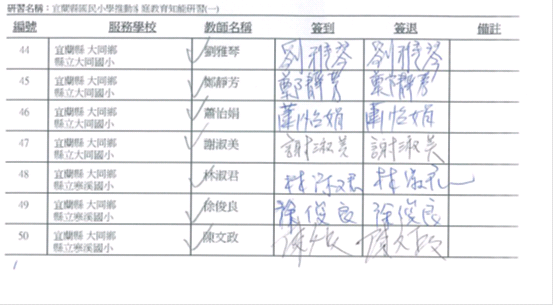 研習名稱：宜蘭縣國民小學推動家庭教育知能研習(一)
編號 服務學校 教師名稱 簽到 簽退 備註
44 宜蘭縣 大同鄉 劉雅琴 劉雅琴 劉雅琴
縣立大同國小
45 宜蘭縣 大同鄉 鄭靜芳 鄭靜芳 鄭靜芳
縣立大同國小
46 宜蘭縣 大同鄉 蕭怡娟 蕭怡娟 蕭怡娟
縣立大同國小
47 宜蘭縣 大同鄉 謝淑美 謝淑美 謝淑美
縣立大同國小
48 宜蘭縣 大同鄉 林淑君 林淑君 林淑君
縣立寒溪國小
49 宜蘭縣 大同鄉 徐俊良 徐俊良 徐俊良
縣立寒溪國小
50 宜蘭縣 大同鄉 陳文政 陳文政 陳文政
縣立寒溪國小